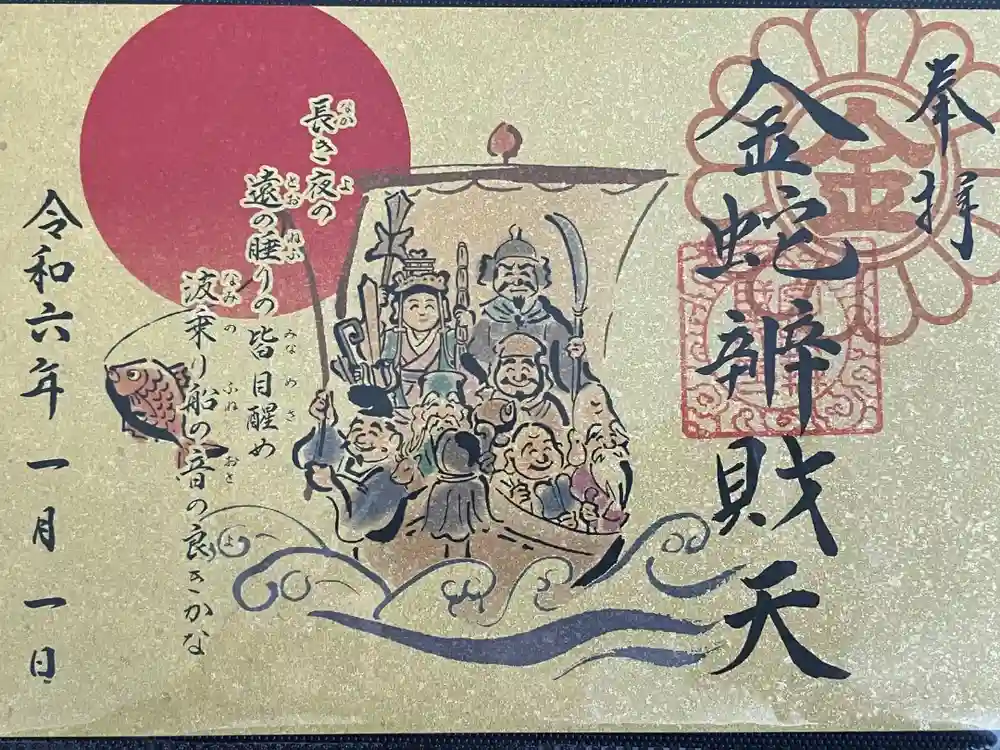 奉拝
金
金蛇辨財天
長き夜の
なが よ
遠の睡りの皆目醒め
とお ねぶ みな め さ
波乗り船の音の良きかな
なみの ふね おと よ
令和六年一月一日